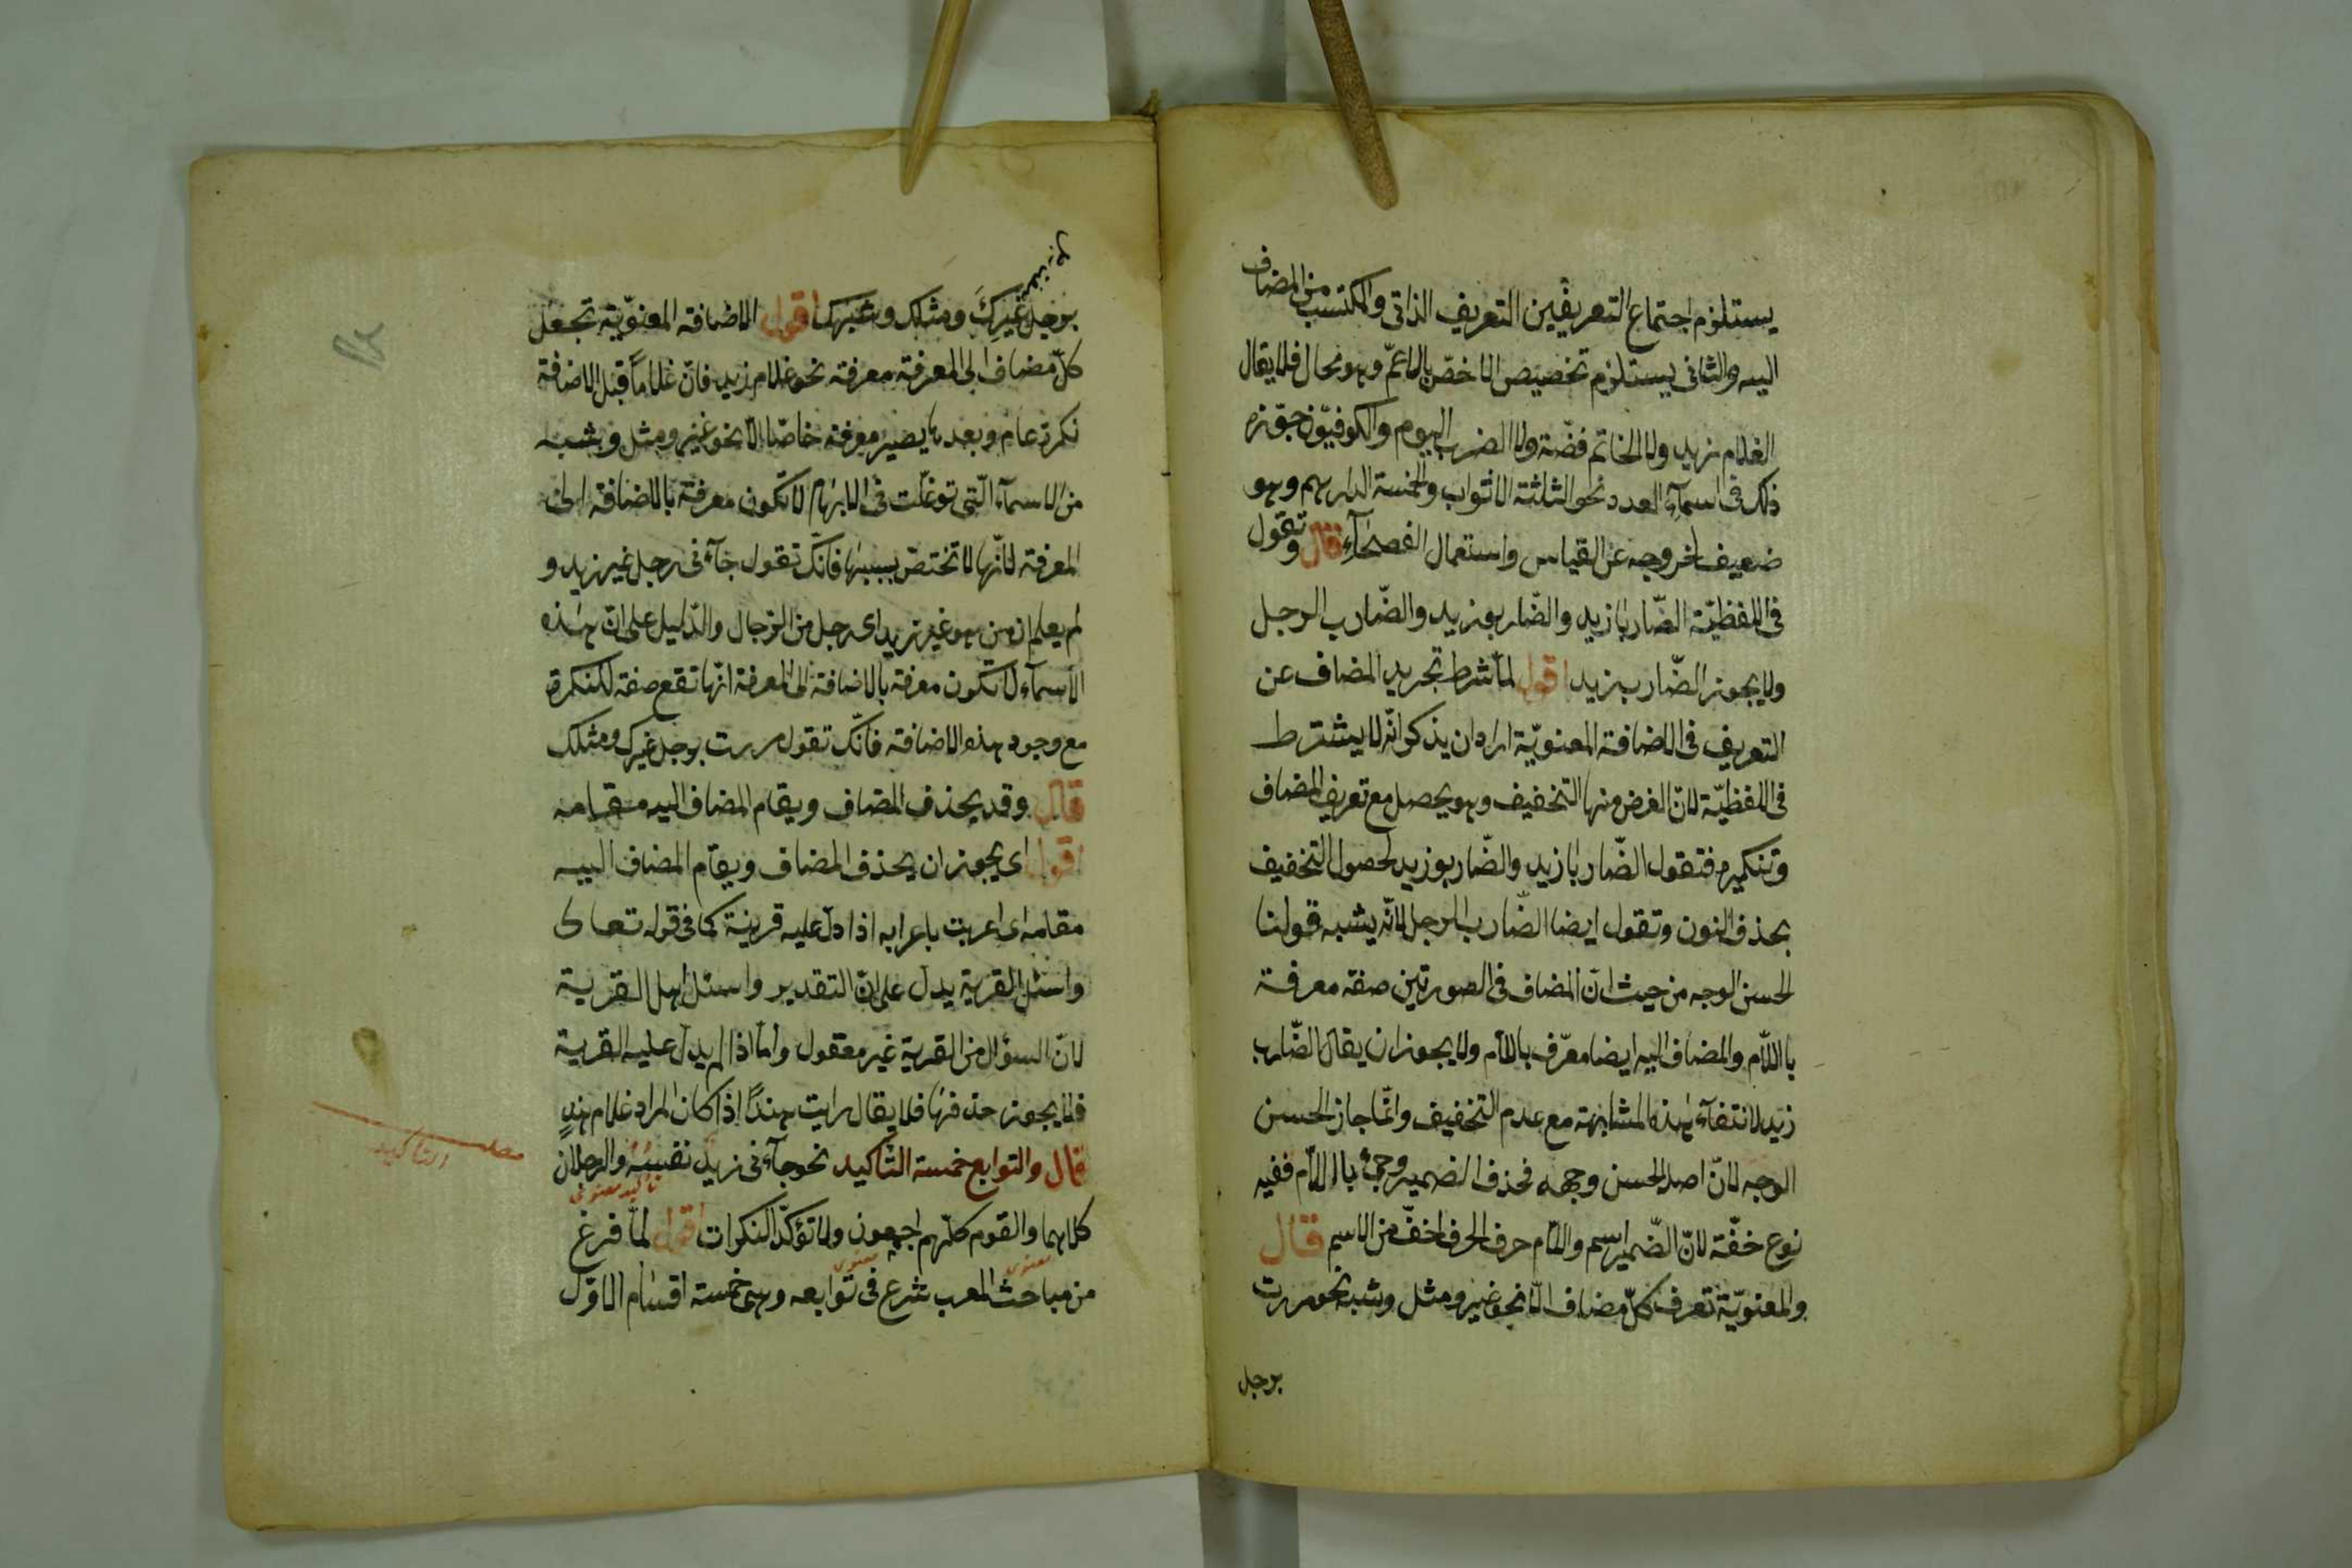 يستلزم اجتماع التعريفين التعريف الذاتى والمكتسب من المضاف
اليه والثانى يستلزم تخصيص الاخصّ بالاعمّ وهو محال فلا يقال
الغلام زيد ولا الخاتم فضّة ولا الضرب اليوم والكوفيّون جوّزه
ذلك فى اسمآء العدد نحو الثلثة الاثواب والخمسة الدراهم وهو
ضعيف لخروجه عن القياس واستعمال الفصحآء قال وتقول
فى اللفظيّة الضّاربا زيد والضّاربو زيد والضّارب الرجل
ولا يجوز الضّارب زيد اقول لمّا شرط تجريد المضاف عن
التعريف فى الاضافة المعنويّة اراد ان يذكر انّه لا يشترط
فى اللفظيّة لانّ الغرض منها التخفيف وهو يحصل مع تعريف المضاف
وتنكيره فتقول الضّاربا زيد والضّاربو زيد لحصول التخفيف
بحذف النون وتقول ايضا الضّارب الرجل لانّه يشبه قولنا
الحسن الوجه من حيث انّ المضاف فى الصورتين صفة معرفة
باللّام والمضاف اليه ايضا معرّف باللّام ولا يجوز ان يقال الضّارب
زيد لانتفآء هذه المشابهة مع عدم التخفيف وانّما جاز الحسن
الوجه لانّ اصله الحسن وجهه فحذف الضمير وجئ باللّام ففيه
نوع خفّة لانّ الضّمير اسم واللّام حرف الحرف اخفّ من الاسم قال
والمعنويّة تعرف كلّ مضاف الّا نحو غير ومثل وشبه نحو مررت
برجل
برجل غيرِكَ ومثلك وشبهك اقول الاضافة المعنويّة تجعل
كلّ مضاف الى المعرفة معرفة نحو غلام زيد فانّ غلاماً قبل الاضافة
نكرة عام وبعدها يصير معرفة خاصّا الّا نحو غير ومثل وشبه
من الاسمآء الّتى توغّلت فى الابهام لا تكون معرفة بالاضافة الى
المعرفة لانّها لا تختصّ بسببها فانّك تقول جآءنى رجل غير زيد و
لم يعلم ان من هو غير زيد اى رجل من الرّجال والدّليل على انّ هذه
الاسمآء لا تكون معرفة بالاضافة الى المعرفة انّها تقع صفة للنكرة
مع وجود هذه الاضافة فانّك تقول مررت برجل غيرك ومثلك
قال وقد يحذف المضاف ويقام المضاف اليه مقامه
اقول اى يجوز ان يحذف المضاف ويقام المضاف اليه
مقامه اى اعربت باعرابه اذا دلّ عليه قرينة كما فى قوله تعالى
واسئل القرية يدلّ على انّ التقدير واسئل اهل القرية
لانّ السؤال من القرية غير معقول وامّا اذا لم يدلّ عليه القرية
فلا يجوز حذفها فلا يقال رايت هنداً اذا كان المراد غلام هندٍ
قال والتوابع خمسة التّاكيد نحو جآءنى زيد نفسه والرجلان
تاكيد معنوى
كلاهما والقوم كلّهم اجمعون ولا تؤكّد النكرات اقول لمّا فرغ
معنوى معنوى
من مباحث المعرب شرع فى توابعه وهى خمسة اقسام الاوّل
التاكيد